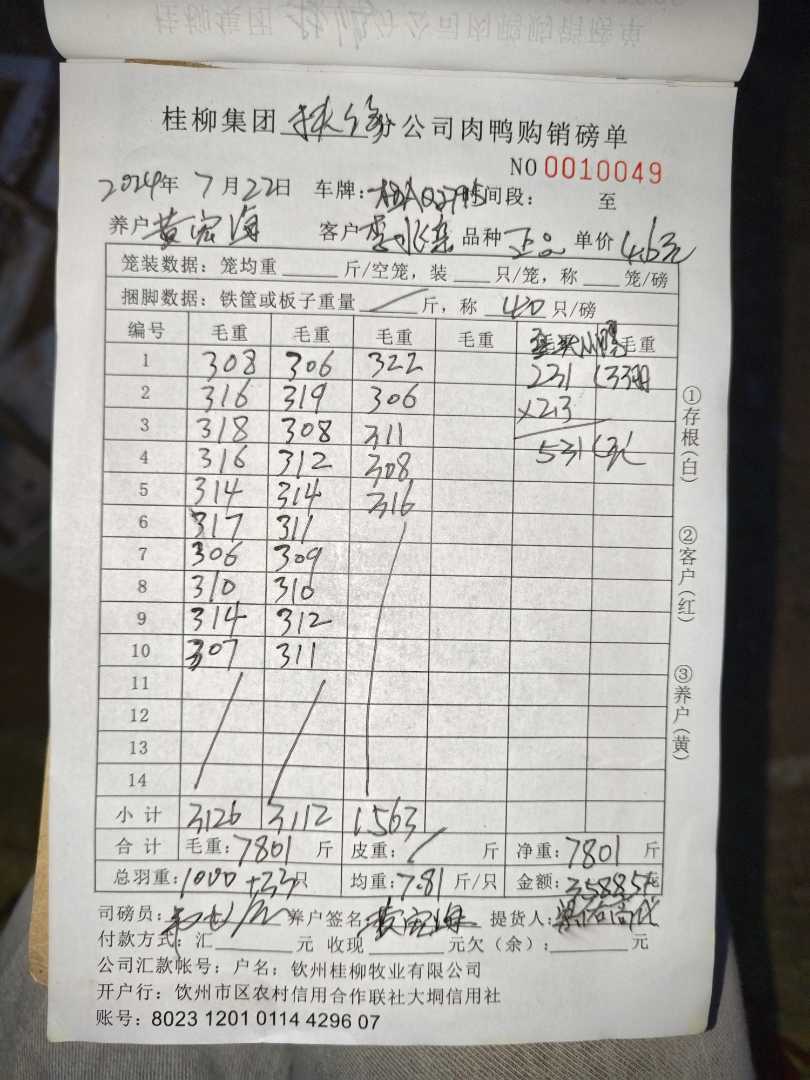 桂柳集团 分公司肉鸭购销磅单
NO 0010049
2024年 7月22日 车牌: 时间段: 至
养户 黄宏海 客户 李 品种 正品 单价 4.6元
笼装数据: 笼均重 斤/空笼, 装 只/笼, 称 笼/磅
捆脚数据: 铁筐或板子重量 / 斤, 称 40 只/磅
编号 毛重 毛重 毛重 毛重 毛重 毛重
1 308 306 322 231
2 316 319 306 x2.3
3 318 308 311
4 316 312 308 531
5 314 314 316
6 317 311
7 306 309
8 310 310
9 314 312
10 307 311
11
12
13
14
小计 3126 3112 1563
合计 毛重: 7801 斤 皮重: / 斤 净重: 7801 斤
总羽重: 1000+33只 均重: 7.81 斤/只 金额: 35885元
司磅员: 养户签名: 黄宏海 提货人:
付款方式: 汇 元 收现 元欠(余): 元
公司汇款帐号: 户名: 钦州桂柳牧业有限公司
开户行: 饮州市区农村信用合作联社大垌信用社
账号: 8023 1201 0114 4296 07
①存根(白)
②客户(红)
③养户(黄)